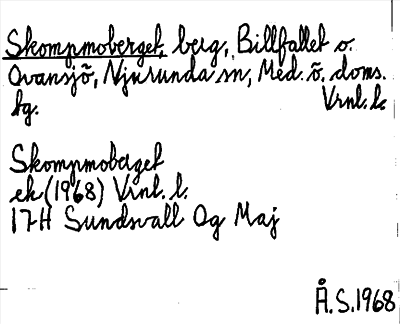 Skompmoberget, berg, Billfallet o.
Ovansjö, Njurunda sn, Med. ö. doms.
tg. Vrnl. l.
Skompmoberget
ek (1968) Vrnl. l.
17H Sundsvall Og Maj
Å.S. 1968